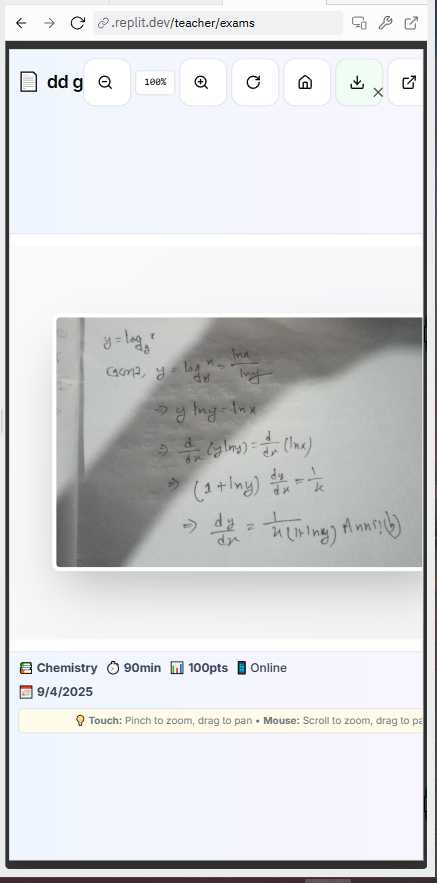 .replit.dev/teacher/exams
dd g
100%
y = log_y x
y = log_y x = lnx/lny
⇒ y lny = lnx
⇒ d/dx (y lny) = d/dx (lnx)
⇒ (1 + lny) dy/dx = 1/x
⇒ dy/dx = 1/x(1+lny) Ans:(b)
Chemistry 90min 100pts Online
9/4/2025
Touch: Pinch to zoom, drag to pan • Mouse: Scroll to zoom, drag to pa